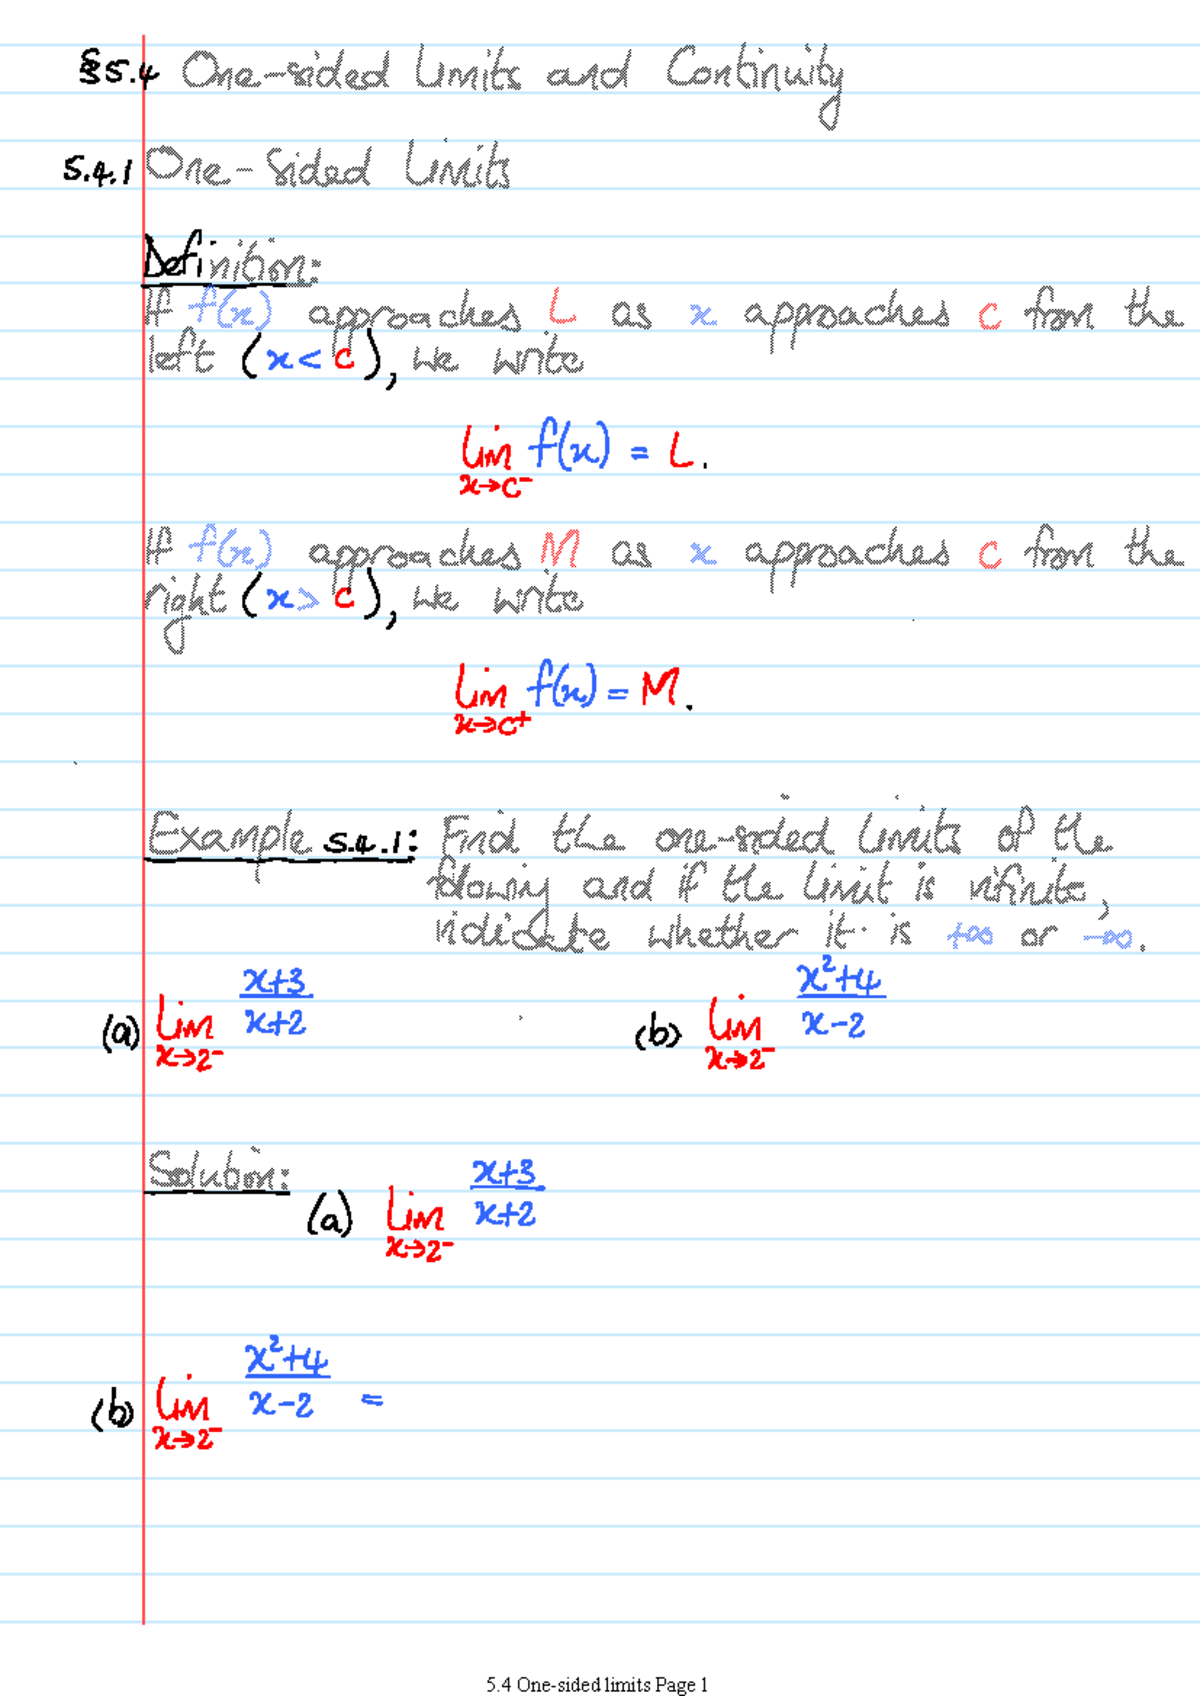 §5.4 One-sided limits and Continuity
5.4.1 One-Sided Limits
Definition:
If f(x) approaches L as x approaches c from the
left (x < c), we write
lim f(x) = L.
x→c⁻
If f(x) approaches M as x approaches c from the
right (x > c), we write
lim f(x) = M.
x→c⁺
Example 5.4.1: Find the one-sided limits of the
following and if the limit is infinite,
indicate whether it is +∞ or -∞.
(a) lim x+3/x+2 (b) lim x²+4/x-2
x→2⁻ x→2⁻
Solution: (a) lim x+3/x+2
x→2⁻
(b) lim x²+4/x-2 =
x→2⁻
5.4 One-sided limits Page 1